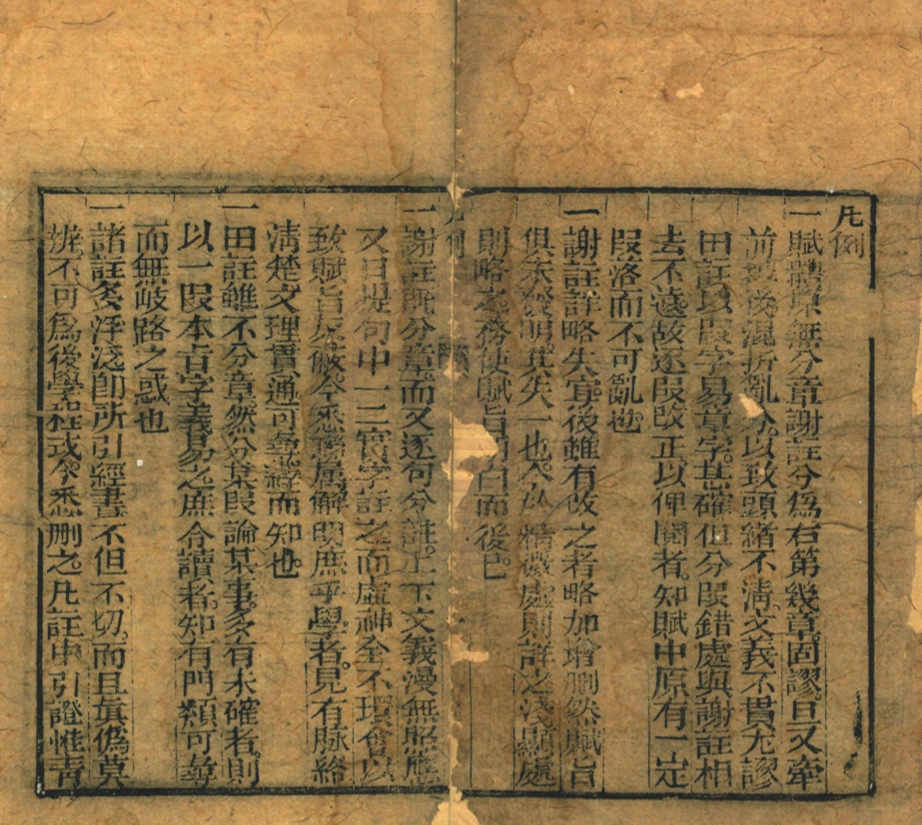 凡例
一賦體原無分章謝註分爲右第幾章固謬且又牽
前後混折亂分以致頭緒不淸文義不貫尤謬
田註以叚字易章字甚確但分叚錯處與謝註相
去不遠故逐叚改正以俾閱者知賦中原有一定
叚落而不可亂也
一謝註詳略失宜後雖有改之者略加增刪然賦旨
俱未發明其失一也今从精微處則詳之淺顯處
則略之務使賦旨明白而後已
凡例
一謝註既分章而又逐句分註上下文義漫無照應
又且提句中一二實字註之而虛神全不理會以
致賦旨反做今悉聯屬解明庶乎學者見有脉絡
淸楚文理貫通可尋繹而知也
一田註雖不分章然分某叚論某事多有未確者則
以一叚本百字義易之庶令讀者知有門類可尋
而無岐路之惑也
一諸註多浮淺卽所引經書不但不切而且眞僞莫
辨不可爲後學程式今悉刪之凡註中引證惟靑